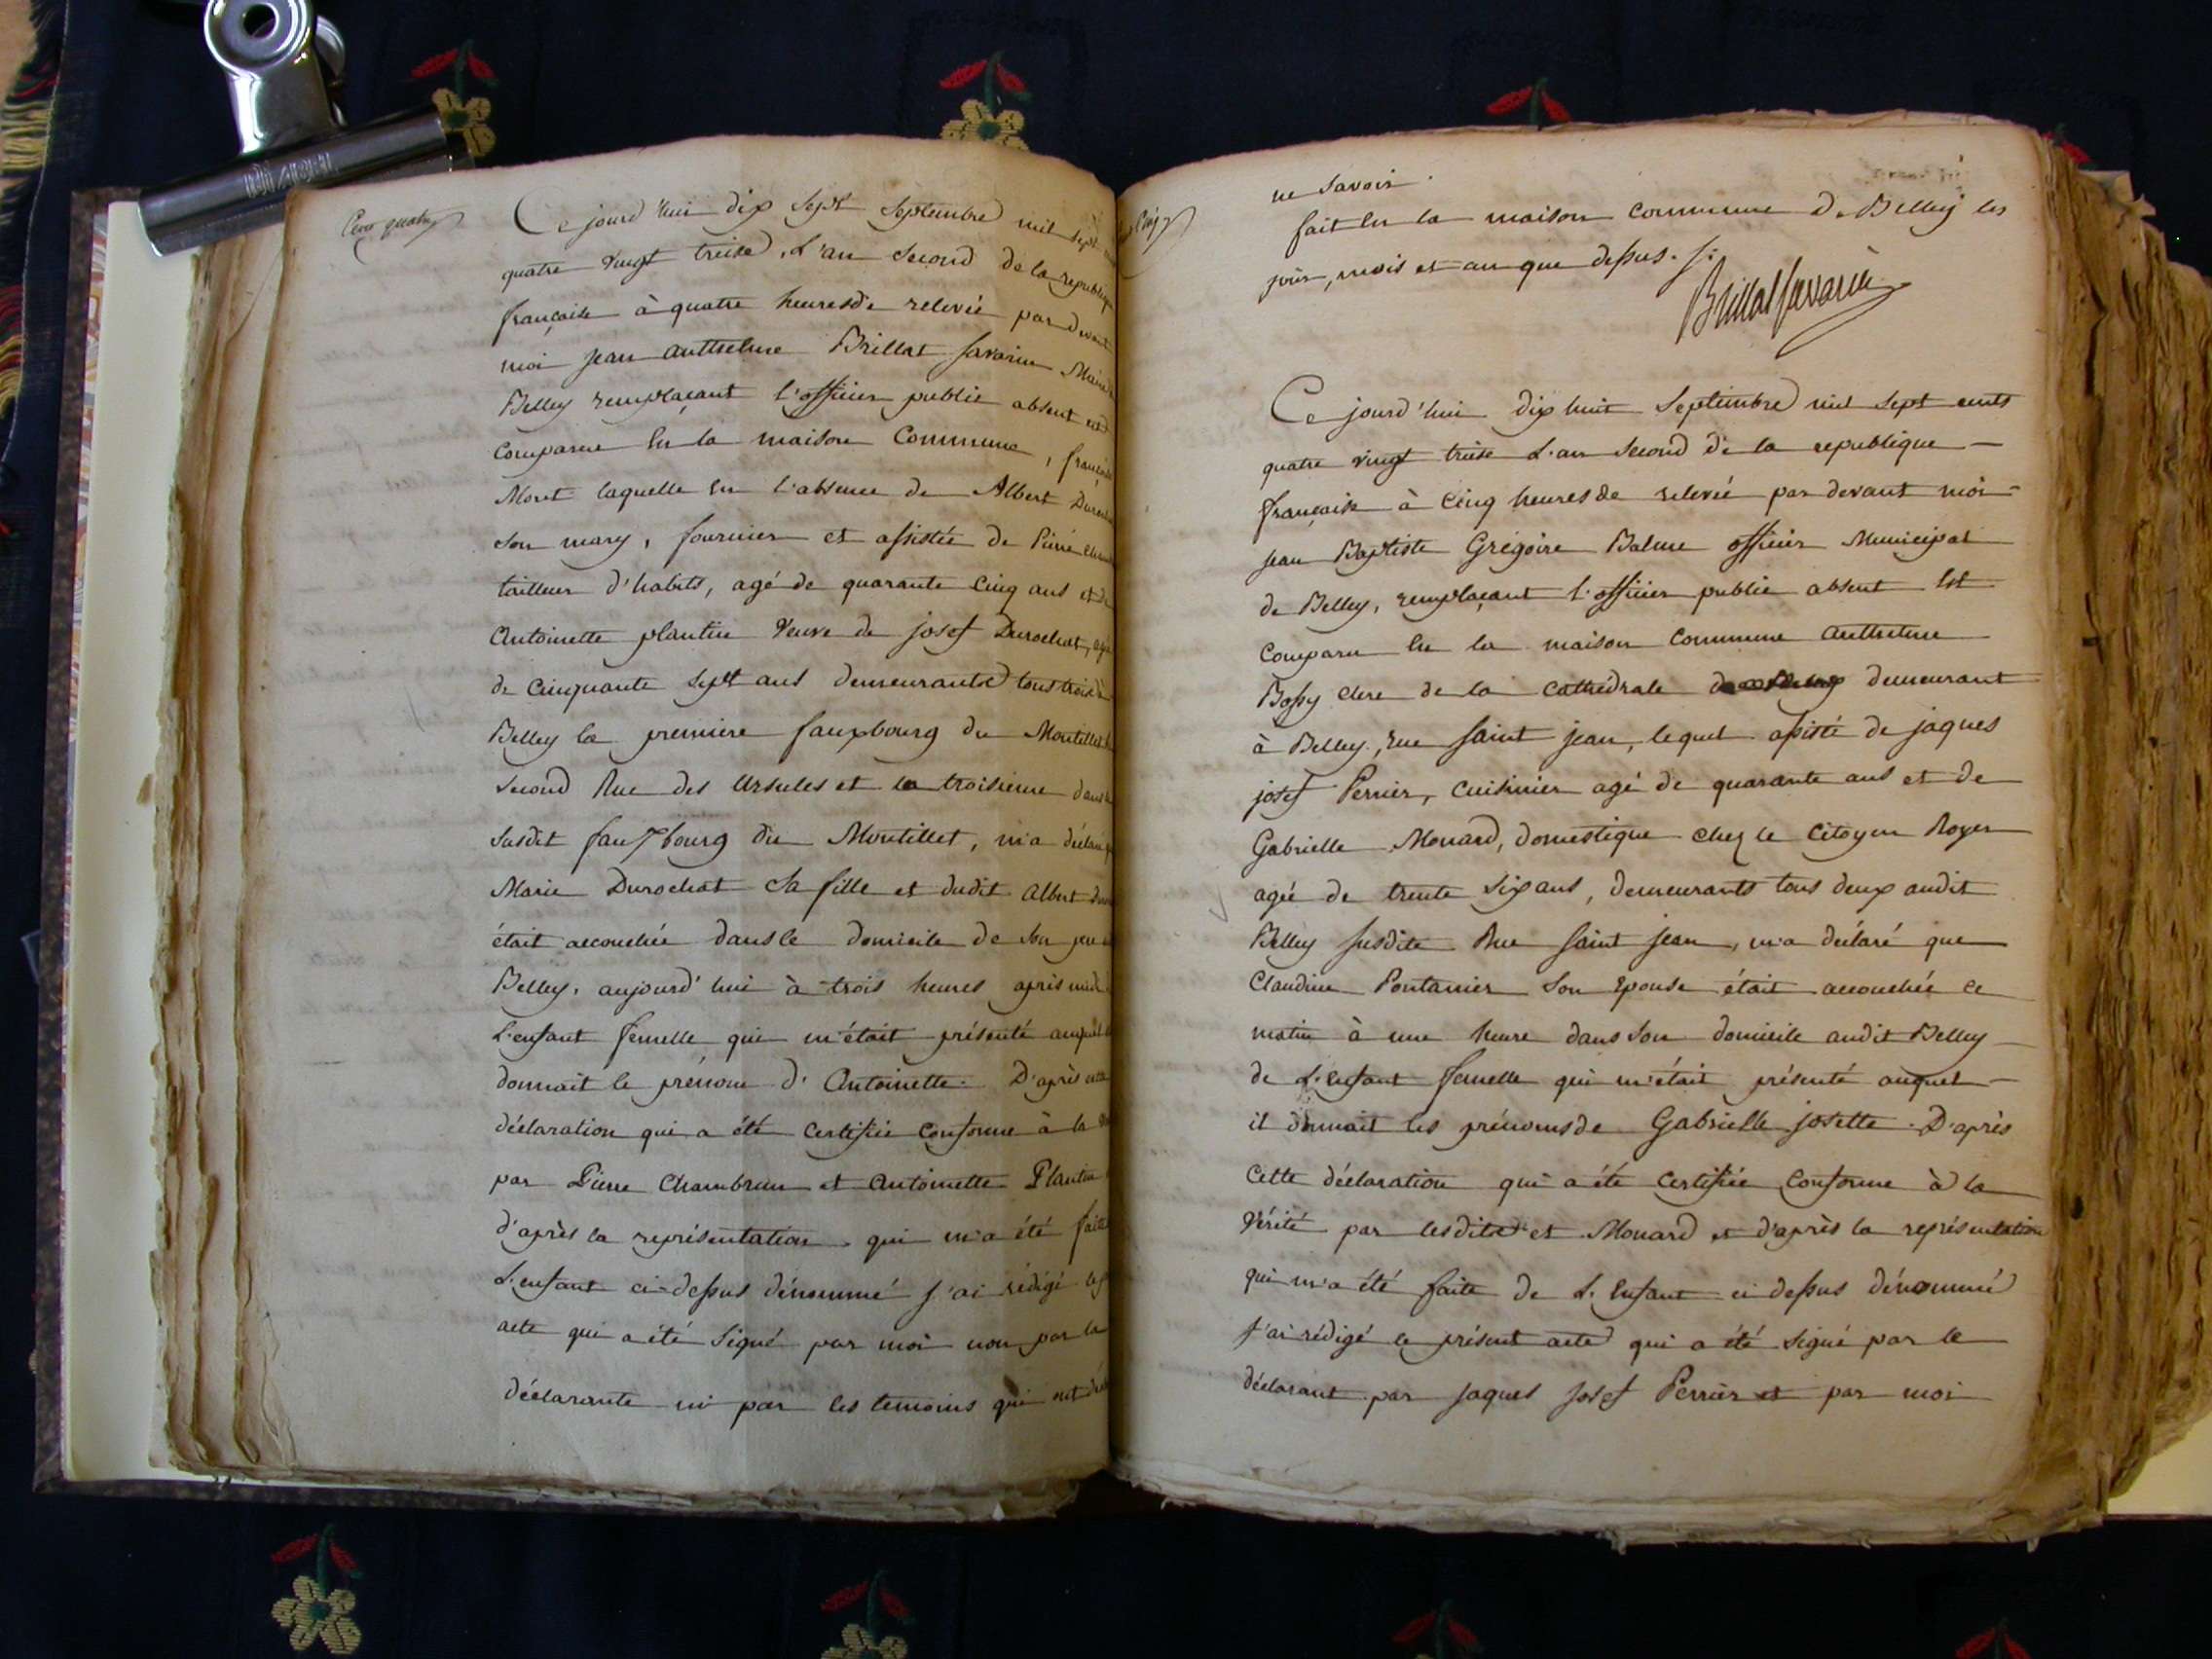 Cent quatre
Ce jourd'hui dix sept septembre mil sept
quatre vingt treise, L'an second de la republique
française à quatre heures de relevée par devant
moi jean anthelme Brillat savarin Maire
Belley remplaçant l'officier public absent est
comparue En la maison Commune, françoise
Moret laquelle En l'absence de Albert Durochat
son mary, fournier et assistée de Pierre
tailleur d'habits, agé de quarante cinq ans et de
antoinette plantin veuve de josef Durochat, agée
de cinquante sept ans demeurants tous trois à
Belley la premiere fauxbourg du Montillet
second Rue des Ursules et la troisieme dans
susdit fauxbourg du Montillet, m'a déclaré
Marie Durochat sa fille et dudit albert
était accouchée dans le domicile de son pere
Belley, aujourd'hui à trois heures après midi
L'enfant femelle qui m'était présenté auquel
donnait le prénom d'Antoinette. D'après cette
déclaration qui a été certifiée conforme à la
par Pierre Chambrun et antoinette Plantin
d'après la représentation qui m'a été faite
L'enfant ci-dessus dénommé j'ai rédigé
acte qui a été signé par moi non par la
déclarante ni par les temoins qui ont
Cinq
ne savoir.
fait En la maison commune de Belley les
jour, mois et an que dessus./.
Brillat savarin
Ce jourd'hui dix huit septembre mil sept cents
quatre vingt treise L'an second de la republique
française à Cinq heures de relevée par devant moi
jean Baptiste Grégoire Balme officier Municipal
de Belley, remplaçant l'officier public absent Est
comparu En la maison commune anthelme
Bossy clerc de la cathédrale demeurant
à Belley, rue saint jean, lequel assisté de jaques
josef Perrier, cuisinier agé de quarante ans et de
Gabrielle Monard, domestique chez le Citoyen Royer
agée de trente six ans, demeurants tous deux audit
Belley susdite Rue saint jean, m'a déclaré que
Claudine Pontanier son Epouse était accouchée ce
matin à une heure dans son domicile audit Belley
de L'enfant femelle qui m'était présenté auquel
il donnait les prénoms de Gabrielle josette. D'après
cette déclaration qui a été certifiée conforme à la
Vérité par lesdits et Monard et d'après la représentation
qui m'a été faite de L'Enfant ci dessus dénommé
j'ai rédigé le présent acte qui a été signé par le
déclarant par jaques josef Perrier et par moi